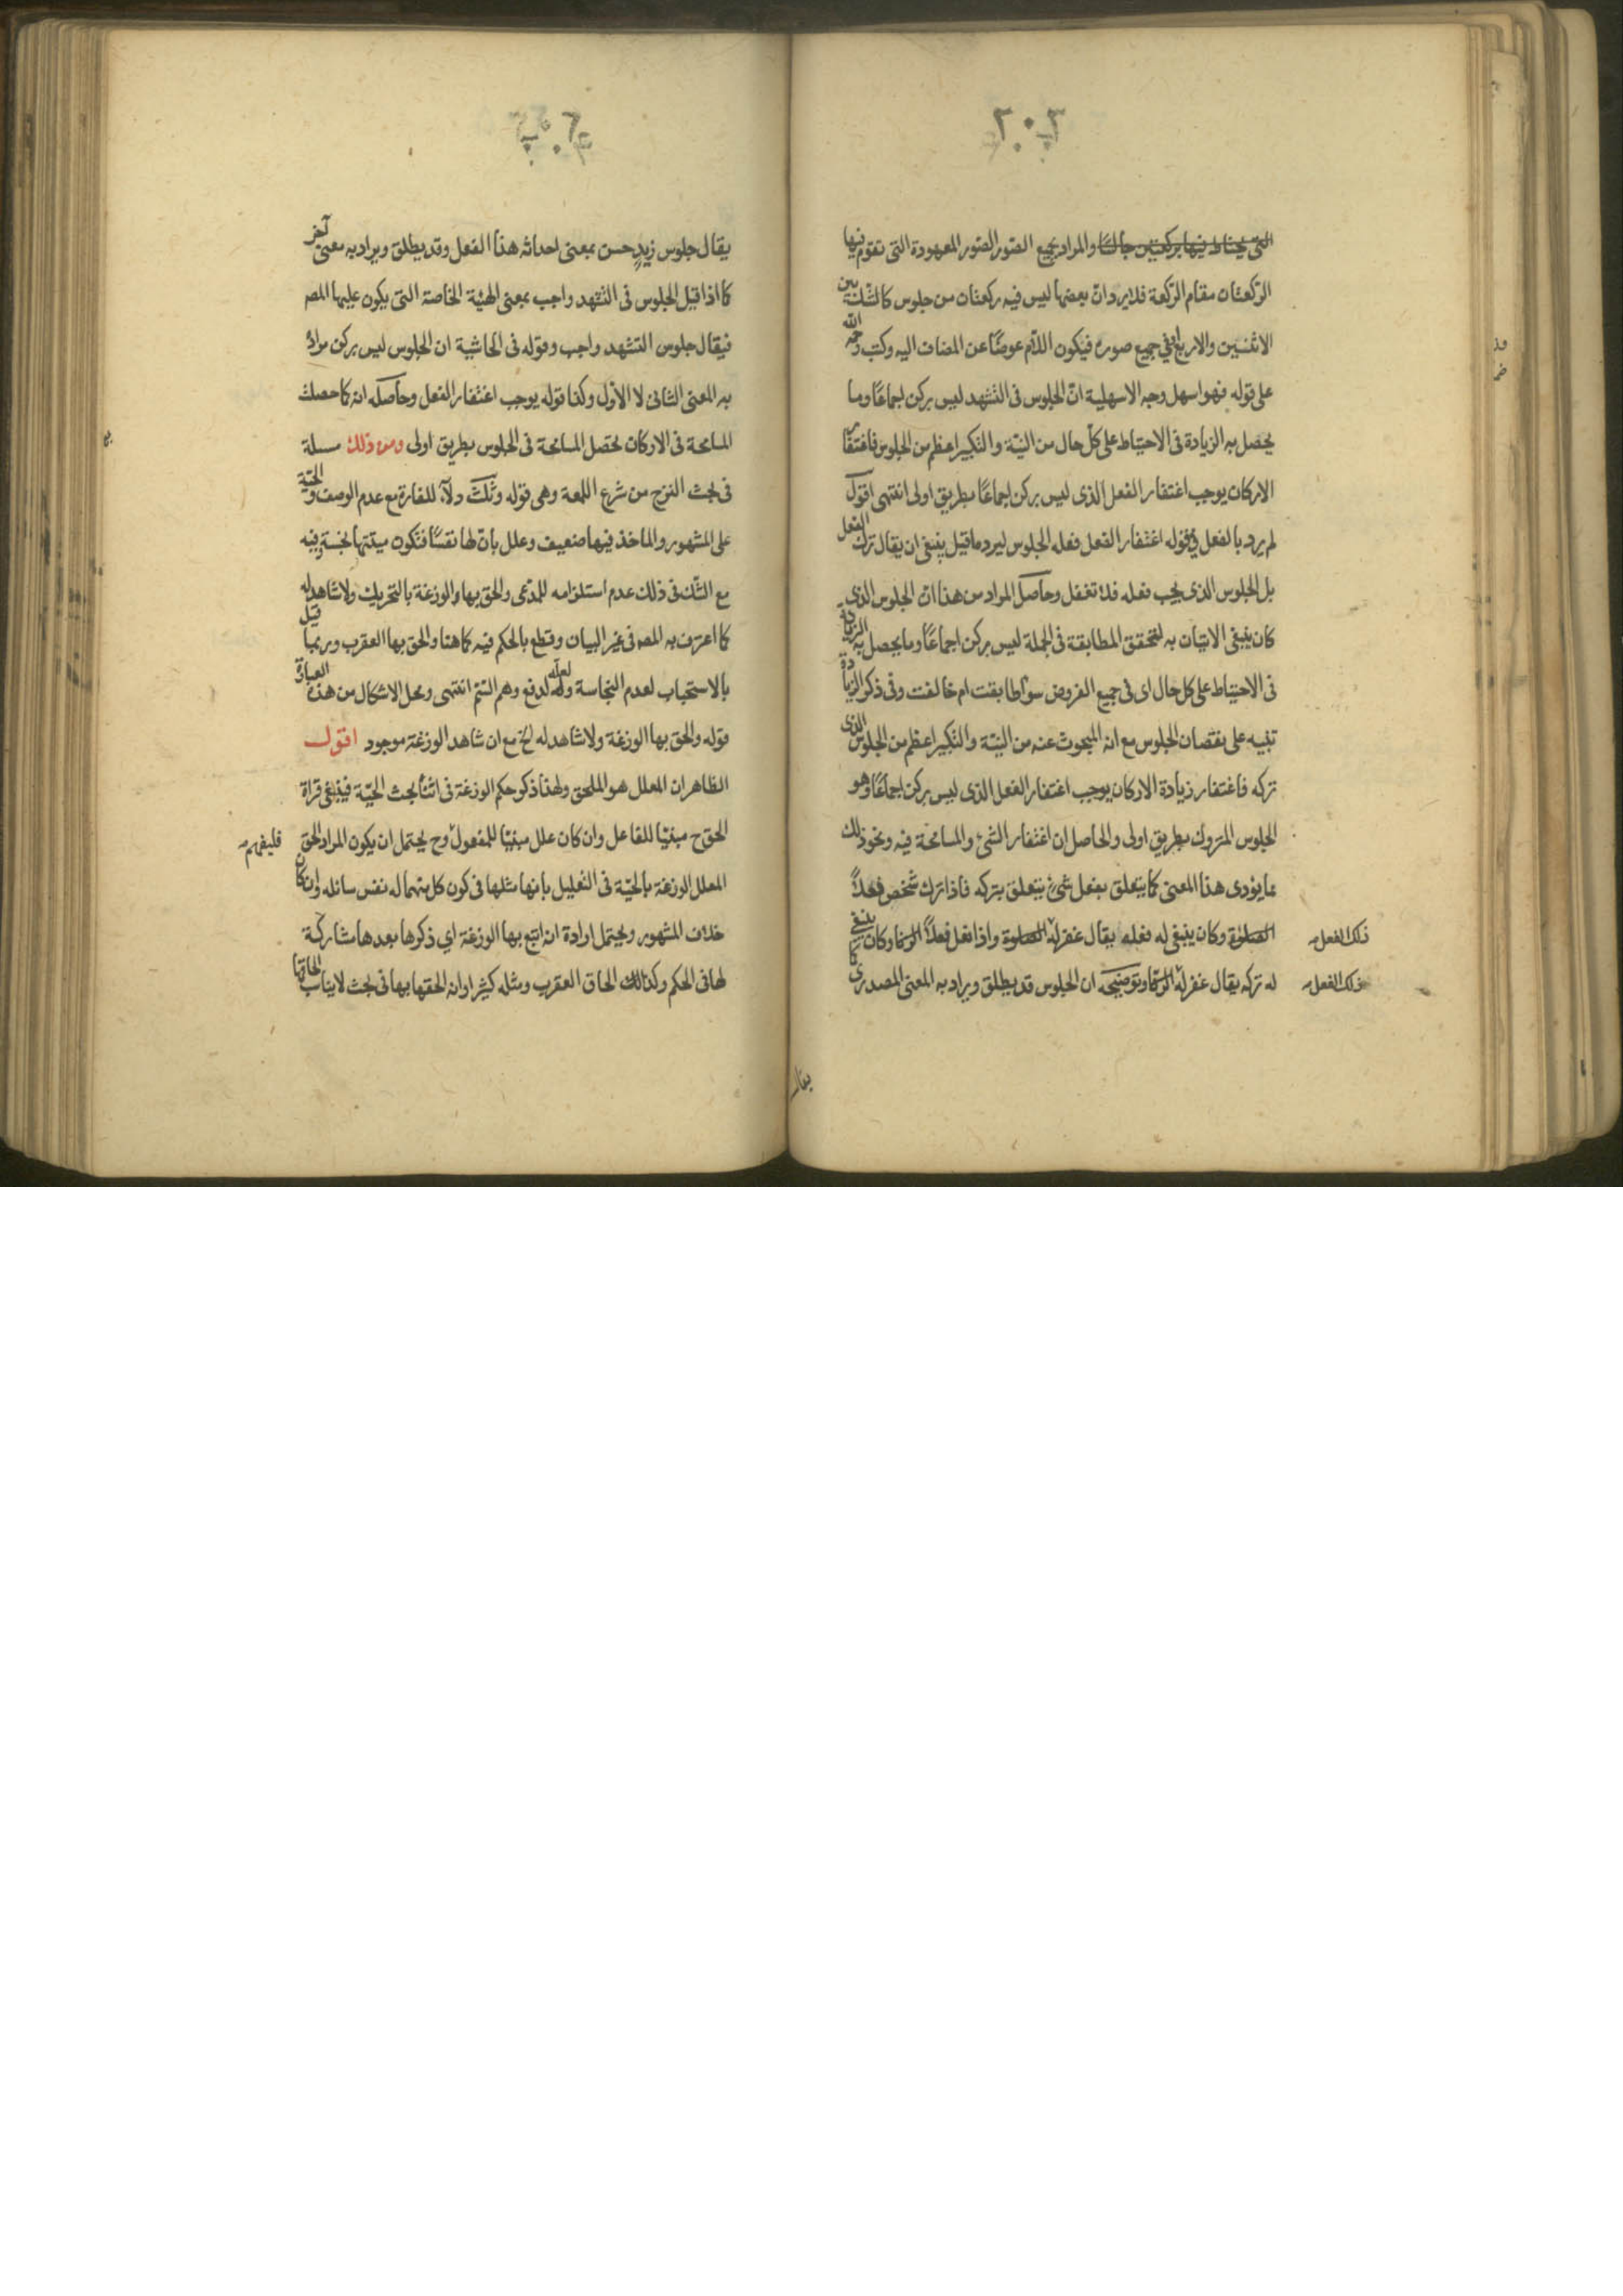 ٢٠٢
التى يحتاط فيها بركعتين جالسا والمراد بجميع الصور الصور المعهودة التى تقوم فيها
الركعتان مقام الركعة فلا يرد انّ بعضها ليس فيه ركعتان من جلوس كالشك بين
الاثنين والاربع فى جميع صوره فيكون اللام عوضًا عن المضاف اليه وكتب رحمه الله
على قوله فهو اسهل وجه الاسهلية انّ الجلوس فى التشهد ليس بركن اجماعًا وما
يحصل به الزيادة فى الاحتياط على كل حال من النيّة والتكبير اعظم من الجلوس فاغتفار
الاركان يوجب اغتفار الفعل الذى ليس بركن اجماعًا بطريق اولى انتهى اقول
لم يرد بالفعل فى قوله اغتفار الفعل فعله الجلوس ليرد ما قيل ينبغى ان يقال ترك الفعل
بل الجلوس الذى يجب فعله فلا تغفل وحاصل المراد من هذا انّ الجلوس الذى
كان ينبغى الاتيان به لتحقق المطابقة فى الجملة ليس بركن اجماعًا وما يحصل به الزيادة
فى الاحتياط على كل حال اى فى جميع الفروض سواء طابقت ام خالفت وفى ذكر الزيادة
تنبيه على نقصان الجلوس مع انه المبحوث عنه من النيّة والتكبير اعظم من الجلوس الذى
تركه فاغتفار زيادة الاركان يوجب اغتفار الفعل الذى ليس بركن اجماعًا وهو
الجلوس المتروك بطريق اولى والحاصل ان اغتفار الشئ والمسامحة فيه ونحو ذلك
مما يؤدى هذا المعنى كما يتعلق بفعل شئ يتعلق بتركه فاذا ترك شخص فعلاً
الصلوة وكان ينبغى له فعله يقال غفر له الصلوة واذا فعل فعلاً الزنا وكان ينبغى
ذلك الفعل
له تركه يقال غفر له الزنا وتوضيحه ان الجلوس قد يطلق ويراد به المعنى المصدرى كما
ذلك الفعل
يقال
يقال جلوس زيدٍ حسن بمعنى احداثه هذا الفعل وقد يطلق ويراد به معنى آخر
كما اذا قيل الجلوس فى التشهد واجب بمعنى الهيئة الخاصة التى يكون عليها المصـ
فيقال جلوس التشهد واجب وقوله فى الحاشية ان الجلوس ليس بركن مراده
به المعنى الثانى لا الاول وكذا قوله يوجب اغتفار الفعل وحاصله انه كما حصلت
المسامحة فى الاركان تحصل المسامحة فى الجلوس بطريق اولى ومن ذلك مسئلة
فى بحث النزح من شرح اللمعة وهى قوله وثلث دلاء للفارة مع عدم الوصف والحيّة
على المشهور والماخذ فيها ضعيف وعلل بانّ لها نفسًا فتكون ميتتها نجسة وفيه
مع الشك فى ذلك عدم استلزامه للمدعى والحق بها والوزغة بالتحريك ولا شاهد له
كما اعترف به المصـ فى غير البيان وقطع بالحكم فيه كما هنا والحق بها العقرب وربما قيل
بالاستحباب لعدم النجاسة ولعله لدفع وهم السّم انتهى ومحل الاشكال من هذه العبارة
قوله والحق بها الوزغة ولا شاهد له الخ مع ان شاهد الوزغة موجود اقول
الظاهر ان المعلل هو الملحق ولهذا ذكر حكم الوزغة فى اثناء بحث الحيّة فينبغى قراة
الحق ح مبنيًا للفاعل وان كان علل مبنيًا للمفعول وح يحتمل ان يكون المراد الحق
فليفهم
المعلل الوزغة بالحيّة فى التعليل بانها مثلها فى كون كل منهما له نفس سائله وان كان
خلاف المشهور ويحتمل ارادة انه اتبع بها الوزغة اي ذكرها بعدها مشاركة
لها فى الحكم وكذلك الحاق العقرب ومثله كثير او انه الحقها بها فى بحث لا يناسب الحاقها